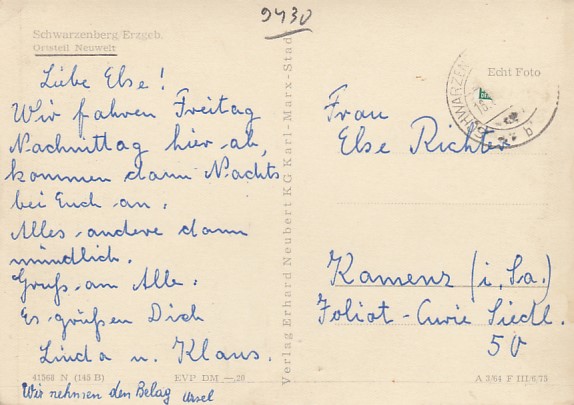 9430
Schwarzenberg Erzgeb.
Ortsteil Neuwelt
Liebe Else!
Wir fahren Freitag
Nachnittag hier ab,
kommen dann Nachts
bei Euch an.
Alles andere dann
mündlich.
Gruß an Alle.
Es grüßen Dich
Linda u. Klaus.
41568 N (145 B) EVP DM —,20
Wir nehmen den Belag Ursel
Verlag Erhard Neubert KG Karl-Marx-Stadt
Echt Foto
SCHWARZEN
b
Frau
Else Richter
Kamenz (i. Sa.)
Joliot-Curie Siedl.
50
A 2/64 F III/6/75